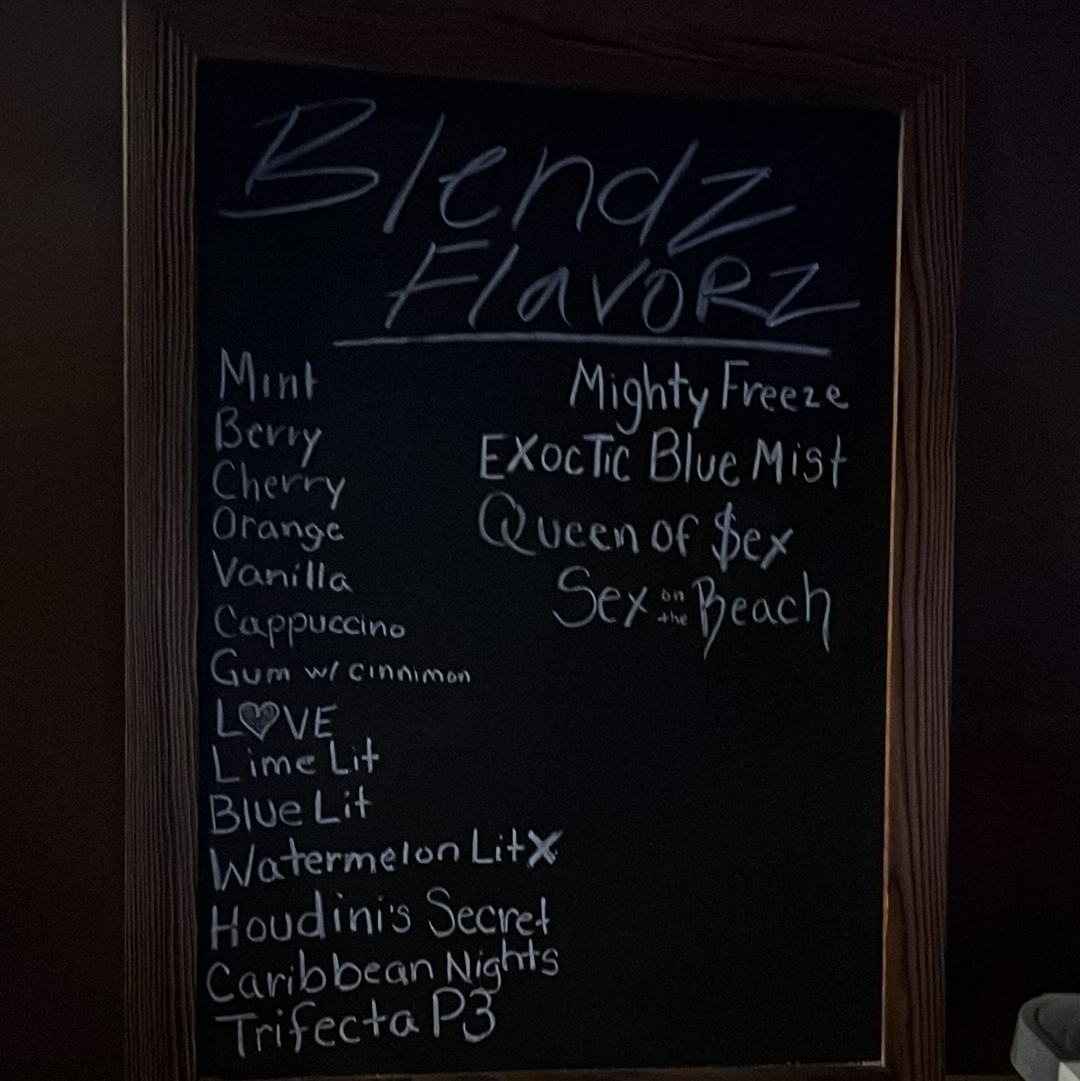 Blendz
FlavoRZ
Mint
Berry
Cherry
Orange
Vanilla
Cappuccino
Gum w/ cinnimon
L♥VE
Lime Lit
Blue Lit
Watermelon LitX
Houdini's Secret
Caribbean Nights
Trifecta P3
Mighty Freeze
EXocTic Blue Mist
Queen of $ex
Sex on the Beach